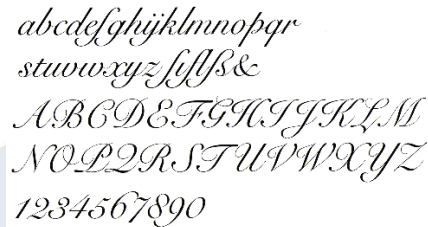 abcdefghijklmnopqr
stuvwxyz fiflß&
ABCDEFGHIJKLM
NOPQRSTUVWXYZ
1234567890